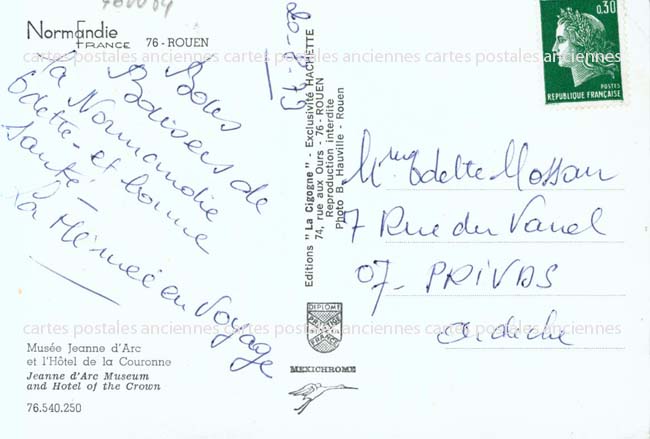 Normandie
FRANCE 76 - ROUEN
Bons
Baisers de
la Normandie
Odette - et bonne
santé -
la Mémée en Voyage
Editions "La Cigogne" - Exclusivité HACHETTE
74, rue aux Ours - 76 - ROUEN
Reproduction interdite
Photo B. Hauville - Rouen
0,30
POSTES
REPUBLIQUE FRANÇAISE
Mme Odette Mossan
7 Rue du Vanel
07 - PRIVAS
Ardèche
cartes postales anciennes cartes postales anciennes cartes postales anciennes
cartes postales anciennes cartes postales anciennes cartes postales anciennes
DIPLOME
PRESTIGE
FRANCE
MEXICHROME
Musée Jeanne d'Arc
et l'Hôtel de la Couronne
Jeanne d'Arc Museum
and Hotel of the Crown
76.540.250